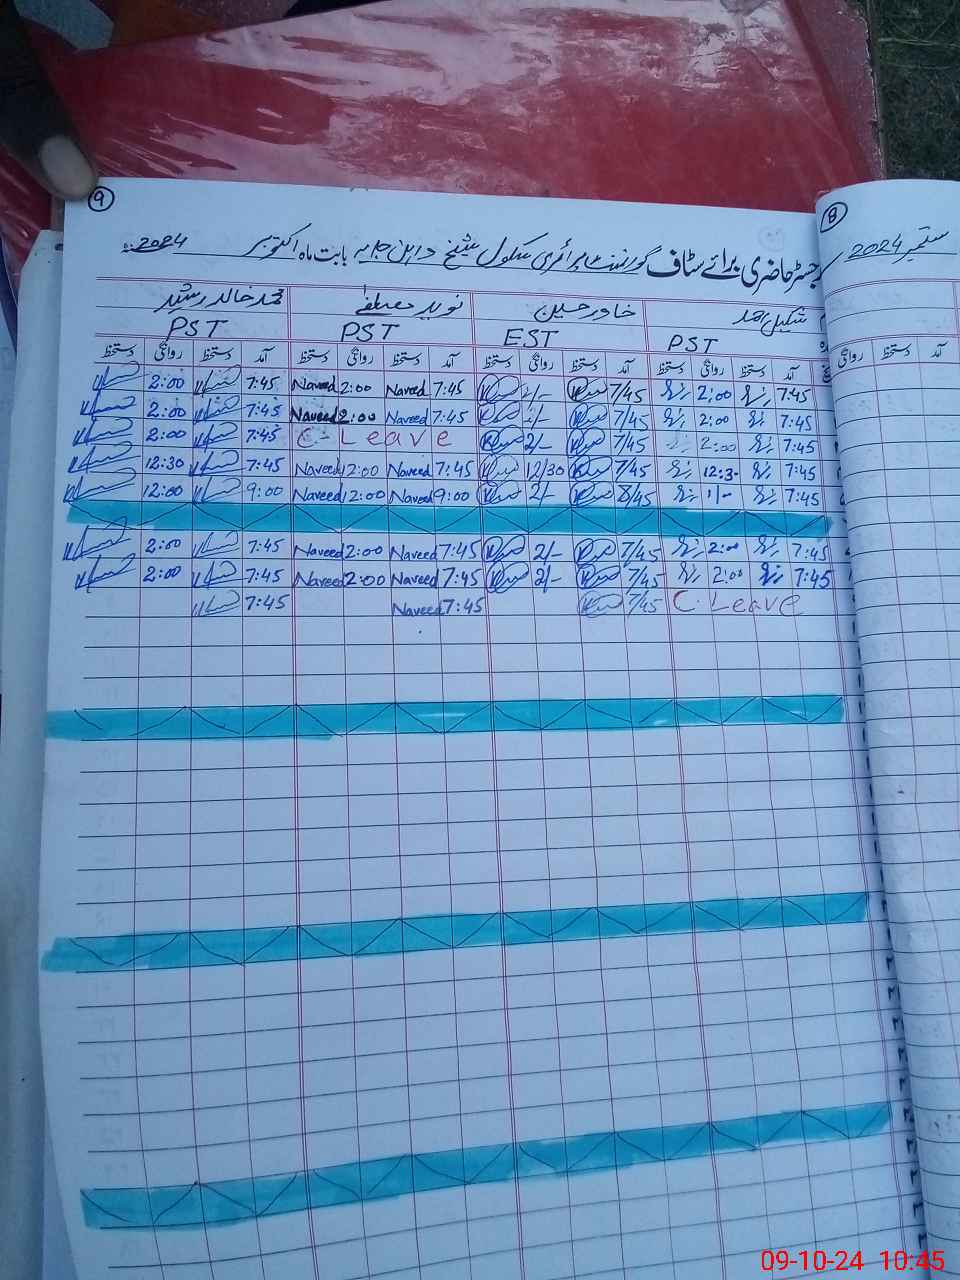 9
8
رجسٹر حاضری برائے سٹاف گورنمنٹ پرائمری سکول شیخ واہن جدید بابت ماہ اکتوبر 2024ء
ستمبر 2024
شکیل احمد خاور حسین نوید مصطفےٰ محمد خالد رشید
PST EST PST PST
آمد دستخط روانگی دستخط آمد دستخط روانگی دستخط آمد دستخط روانگی دستخط آمد دستخط روانگی دستخط
آمد دستخط روانگی
2:00 7:45 Naveed 2:00 Naveed 7:45 2/- 7/45 2:00 7:45
2:00 7:45 Naveed 2:00 Naveed 7:45 2/- 7/45 2:00 7:45
2:00 7:45 C- Leave 2/- 7/45 2:00 7:45
12:30 7:45 Naveed 12:00 Naveed 7:45 12/30 7/45 12:30 7:45
12:00 9:00 Naveed 12:00 Naveed 9:00 2/- 8/45 1/- 7:45
2:00 7:45 Naveed 2:00 Naveed 7:45 2/- 7/45 2:00 7:45
2:00 7:45 Naveed 2:00 Naveed 7:45 2/- 7/45 2:00 7:45
7:45 Naveed 7:45 7/45 C. Leave
09-10-24 10:45